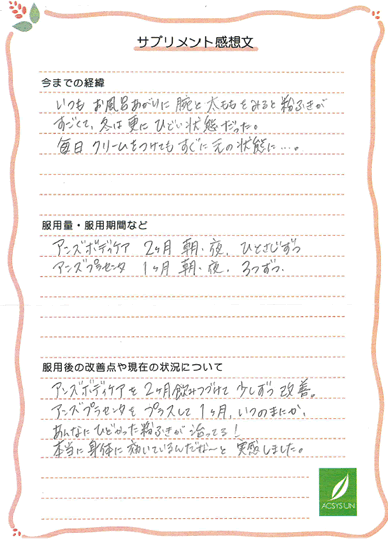 サプリメント感想文
今までの経緯
いつも お風呂あがりに 腕と 太ももをみると 粉ふきが
すごくて、冬は 更に ひどい 状態だった。
毎日 クリームをつけても すぐに 元の 状態に…。
服用量・服用期間など
アンズボディケア 2ヶ月 朝・夜、ひとさじずつ
アンズプラセンタ 1ヶ月 朝・夜、3つずつ.
服用後の改善点や現在の状況について
アンズボディケアを 2ヶ月飲みつづけて 少しずつ 改善。
アンズプラセンタを プラスして 1ヶ月、いつのまにか、
あんなに ひどかった 粉ふきが 治ってる!
本当に 身体に 効いているんだな〜と 実感しました。
ACSYSUN